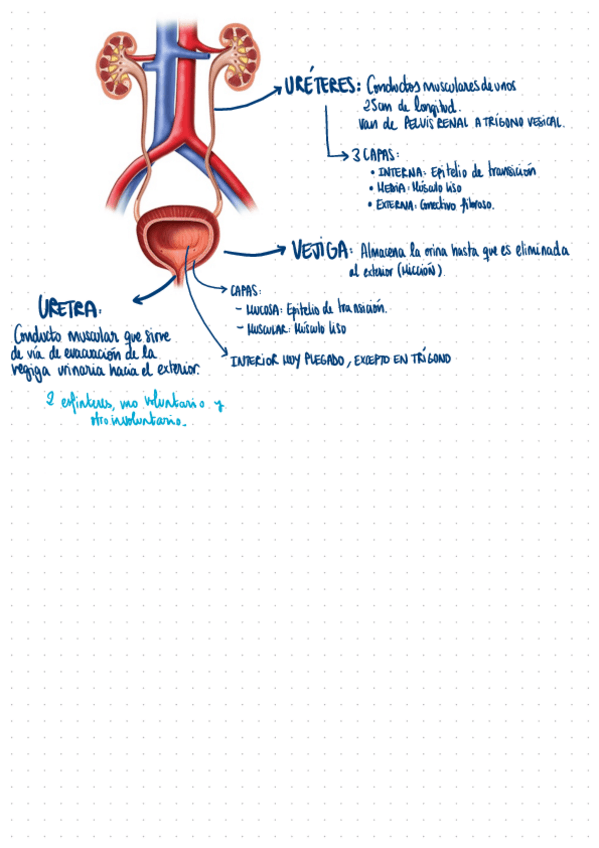 URÉTERES: Conductos musculares de unos
25cm de longitud.
Van de PELVIS RENAL A TRÍGONO VESICAL.
3 CAPAS:
• INTERNA: Epitelio de transición
• MEDIA: Músculo liso
• EXTERNA: Conectivo fibroso.
VEJIGA: Almacena la orina hasta que es eliminada
al exterior (MICCIÓN)
CAPAS:
- MUCOSA: Epitelio de transición.
- MUSCULAR: Músculo liso
INTERIOR MUY PLEGADO, EXCEPTO EN TRÍGONO
URETRA:
Conducto muscular que sirve
de vía de evacuación de la
vegiga urinaria hacia el exterior.
2 esfínteres, uno voluntario y
otro involuntario.